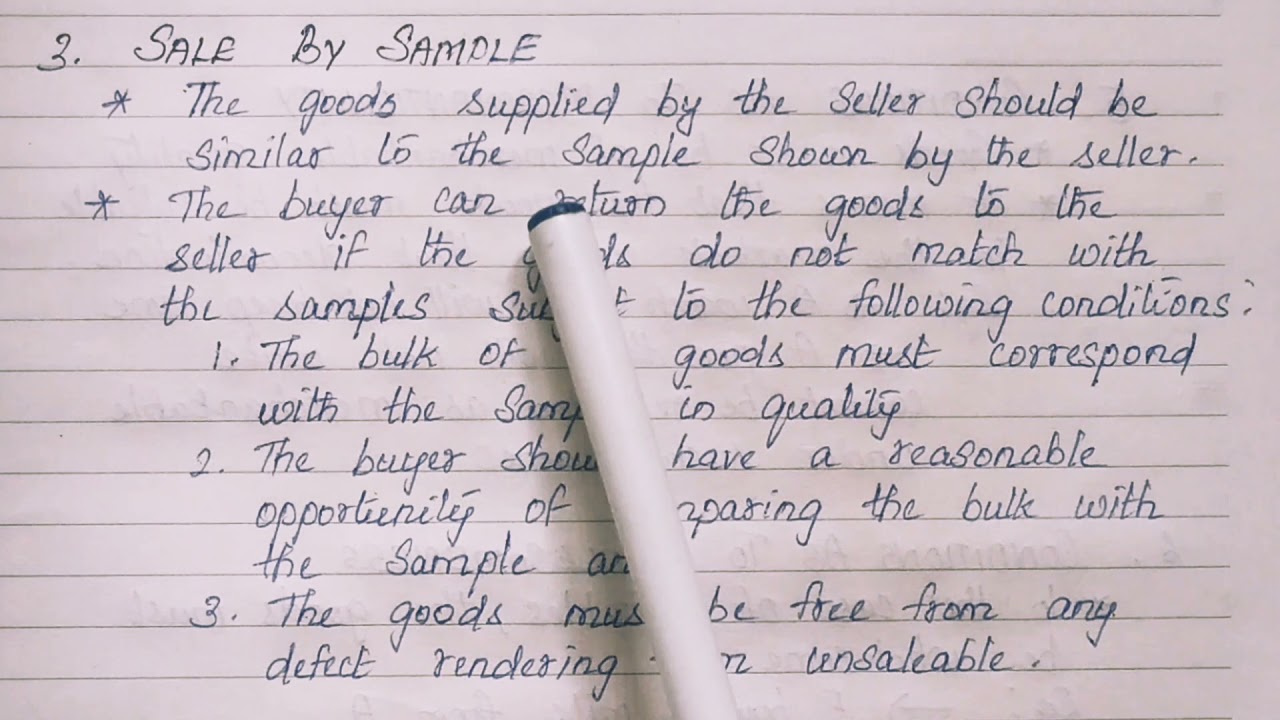 3. SALE BY SAMPLE
* The goods supplied by the seller should be
similar to the sample shown by the seller.
* The buyer can return the goods to the
seller if the goods do not match with
the samples subject to the following conditions:
1. The bulk of goods must correspond
with the sample in quality
2. The buyer should have a reasonable
opportunity of comparing the bulk with
the sample and
3. The goods must be free from any
defect rendering unsaleable.